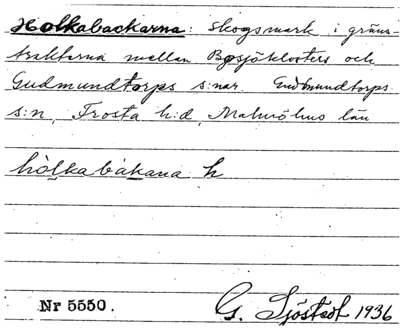 Holkabackarna: skogsmark i gräns-
trakterna mellan Bosjöklosters och
Gudmundtorps s:nar. Gudmundtorps
s:n, Frosta h:d, Malmöhus län
hòlkabàkana h
Nr 5550.
G. Sjöstedt 1936